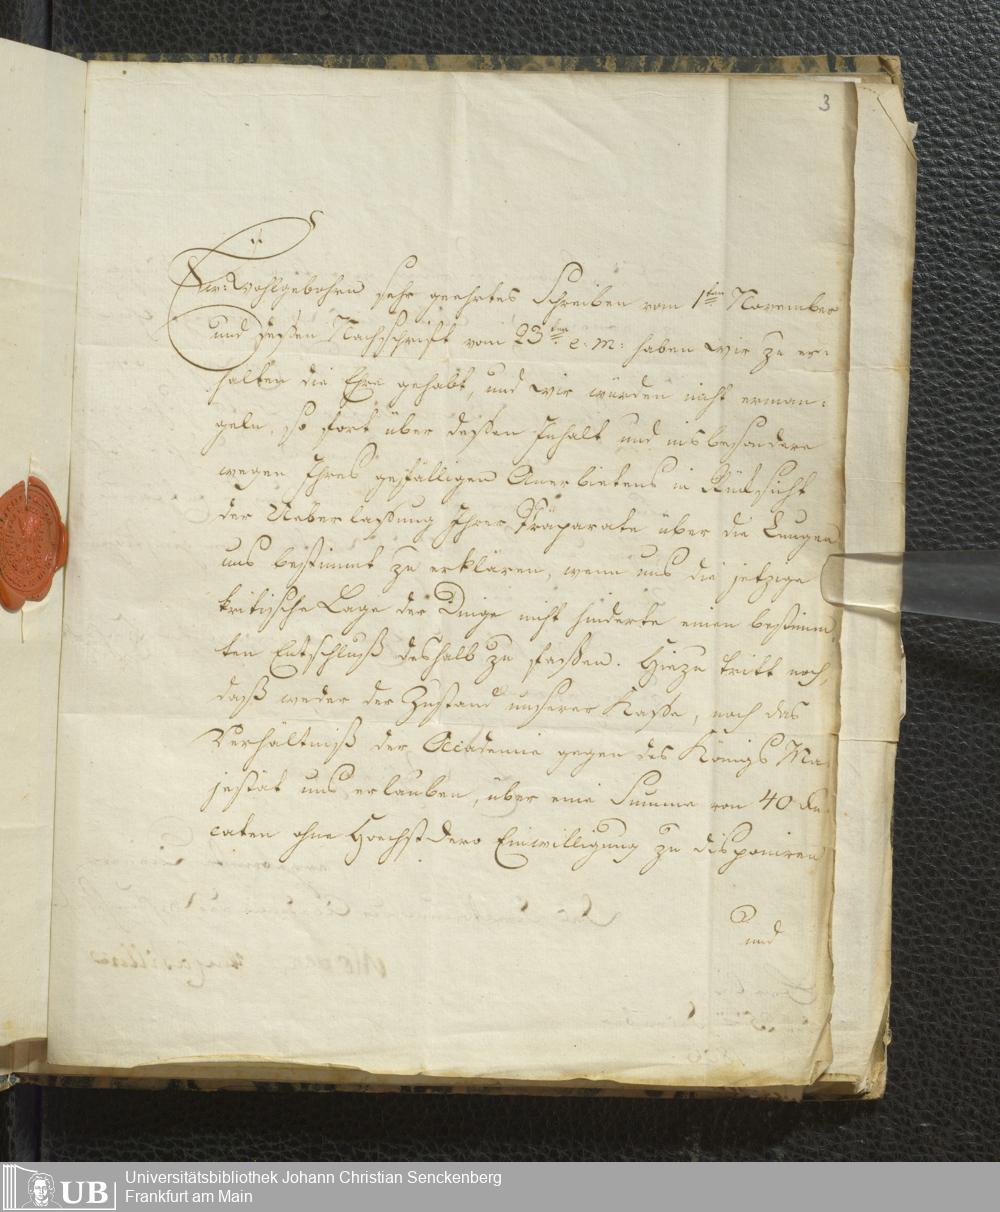 3
Ew: Wohlgebohrn sehr geehrtes Schreiben vom 1ten November
und dessen Nachschrift vom 23ten e. m: haben wir zu er:
halten die Ehre gehabt, und wir würden nicht erman:
geln, so fort über dessen Inhalt und insbesondere
wegen Ihres gefälligen Anerbietens in Rücksicht
der Ueberlaßung Ihrer Präparate über die Lungen
uns bestimmt zu erklären, wenn uns die jetzige
kritische Lage der Dinge nicht hinderte einen bestimm
ten Entschluß deshalb zu faßen. Hiezu tritt noch,
daß weder der Zustand unserer Kaße, noch das
Verhältniß der Academie gegen des Königs Ma
jestät uns erlauben, über eine Summe von 40 Du
caten ohne Hoechstdero Einwilligung zu disponiren
und
UB
Universitätsbibliothek Johann Christian Senckenberg
Frankfurt am Main